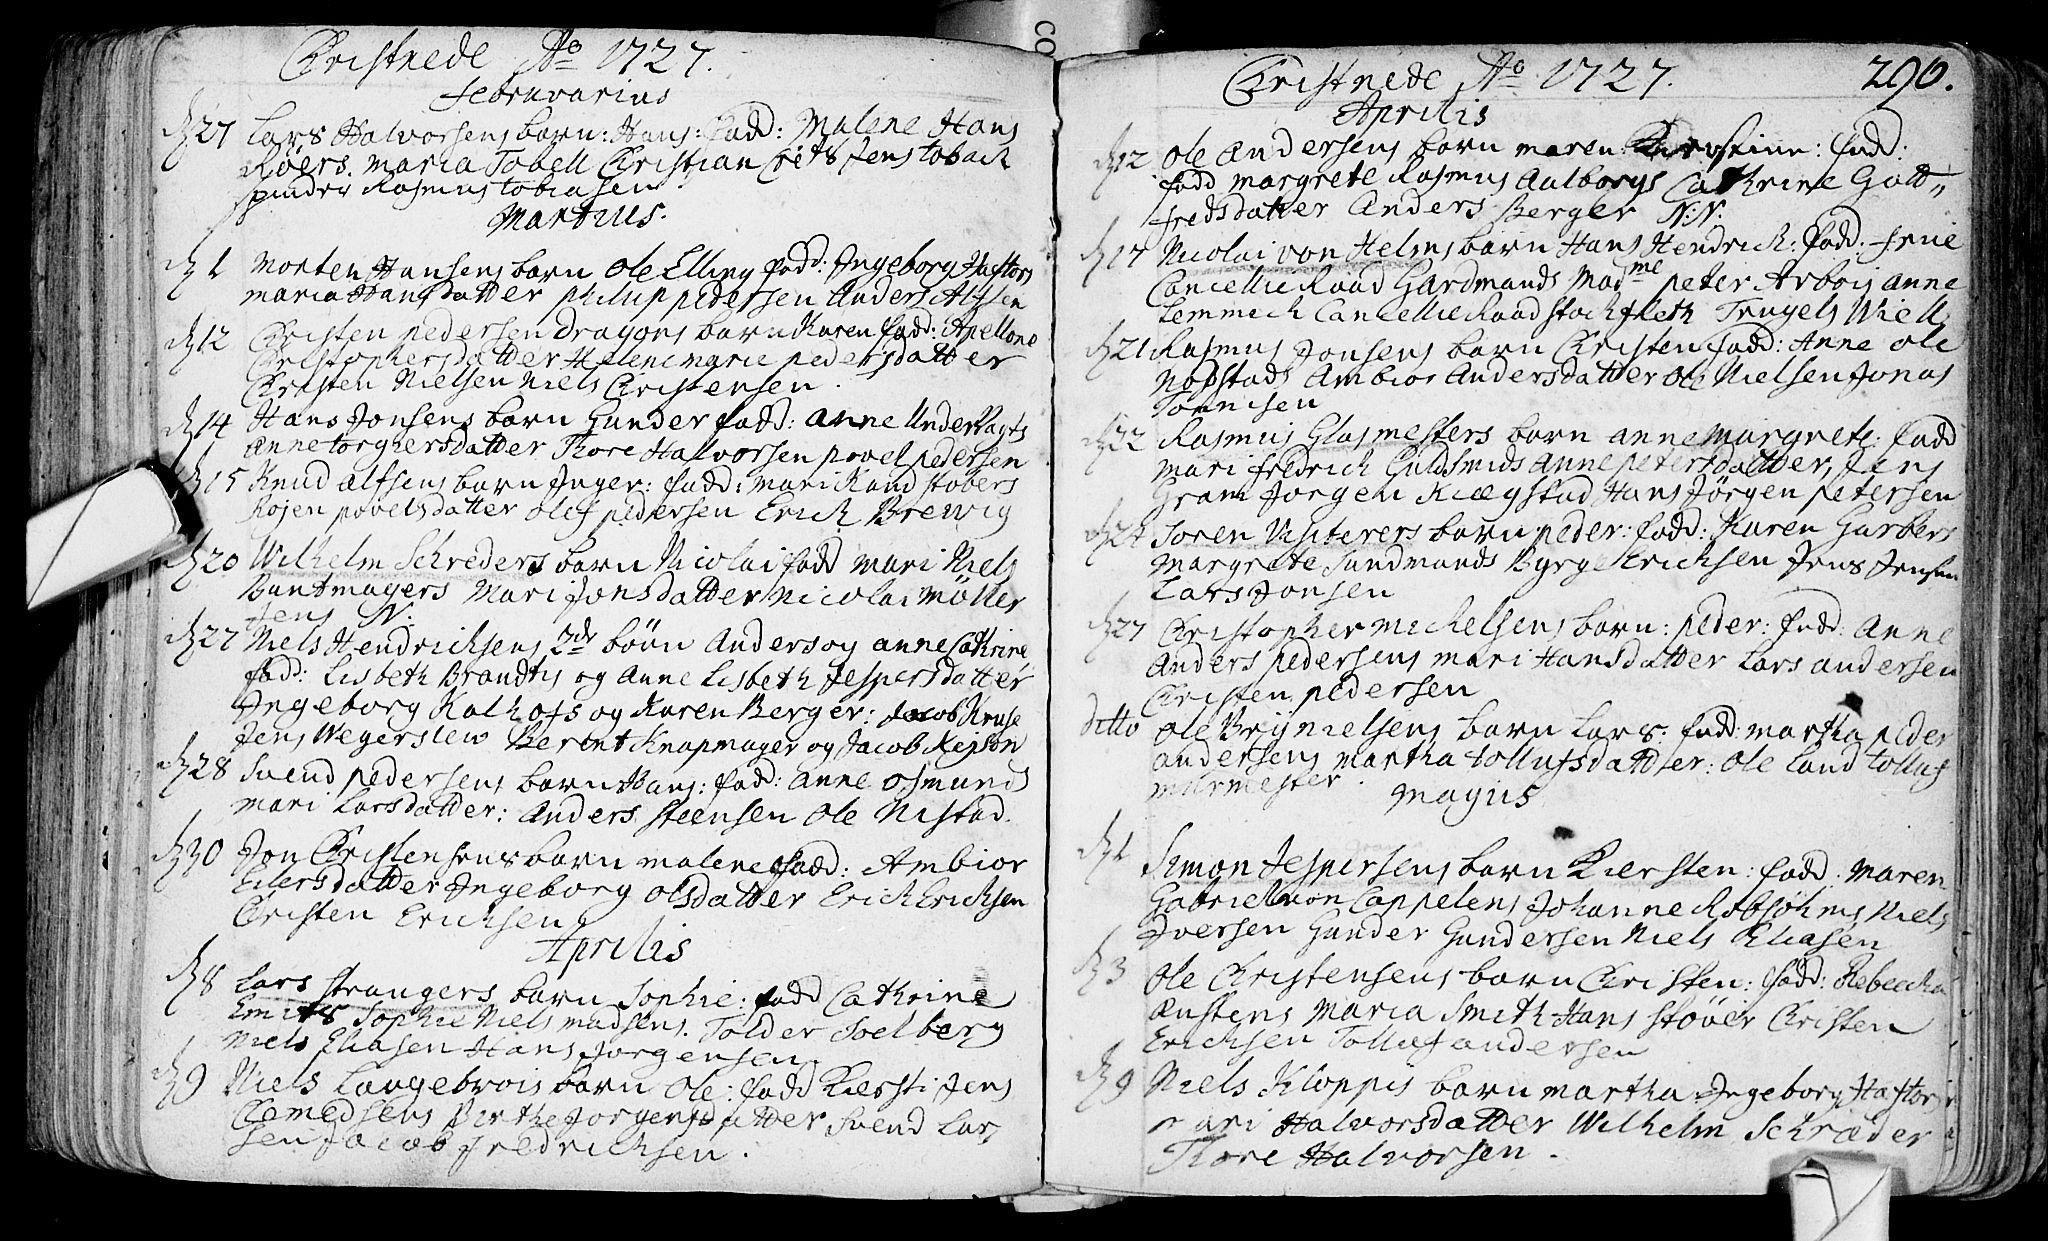 Christnede Ao 1727.
Februarius
d 27 Lars Halvorsens barn: Hans: Fadd: Malene Hans
Röers. Maria Tobell Christian Jens toback
spinder Rasmus tobiasen
Martius.
d 1 Morten Hansens barn Ole Elling fadd: Ingeborg Haftors
maria Hansdatter philup pedersen Anders Alfsen
d 12 Christen pedersen dragons barn Karen fadd: Apellone
Christophersdatter Helene marie pedersdatter
Christen Nielsen Niels Christensen.
d 14 Hans Jonsens barn Gunder fadd: anne UnderVagts
Anne torgiersdatter Thore Halvorsen povel pedersen
d 15 Knud alfsens barn Inger: fadd: mari Knud stobers
Rojen povelsdatter oles pedersen Erick Brewig
d 20 Wilhelm Schreders barn Nicolai fadd mari Niels
Buntmagers Mari Jonsdatter Nicolai Möller
Jens N:
d 27 Niels Hendricksens 2de börn Anders og anne Cathrine
fadd: Lisbeth Brandtis og Anne Lisbeth Jespersdatter
Ingeborg Kalhofs og Karen Berger: Jacob Kruse
Jens Wegerslew Berent Knapmager og Jacob
d 28 Svend pedersens barn Hans: fadd: anne osmunds
mari Larsdatter: Anders steensen ole Nistad.
d 30 Jon Christensens barn malene fadd: Ambior
Eilersdatter Ingeborg olsdatter Erick Ericksen
Christen Ericksen
Aprilis
d 8 Lars strangers barn Sophie: fadd Cathrine
Sophie Niels madsens. Tolder Soelberg
Niels Eliasen Hans Jorgensen
d 9 Niels Langebrois barn ole: fadd Kiersti Jens
Clemedsens Birthe Jorgensdatter Svend Lar
sen Jacob fredricksen.
Christnede Ao 1727. 290.
Aprilis
d 12 Ole Andersens barn maren: Kirstine: fadd:
fadd margrete Rasmus Aalborgs Cathrine Gott„
fredsdatter Anders Berger N:N:
d 17 Nicolai von Helms barn Hans Hendrick: fadd: frue
Cancellie Raad Gardmands Madme peter Arbois anne
Lemmech Cancellie Raad stockfleth Trugels Wiell
d 21 Rasmus Jonsens barn Christen fadd: Anne ole
Nopstads Ambior Andersdatter ole Nielsen Jonas
Tönnesen
d 22 Rasmus Glasmesters barn anne margrete: fadd
mari fredrich Guldsmids Anne petersdatter, Jens
Gram Jorgen Kiægstad Hans Jörgen petersen
d 24 Soren Visiterers barn peder: fadd: Karen Garbers
Margrete Sundmands Byrge Ericksen Jens Jensen
Lars Jonsen
d 27 Christopher michelsens barn: peder: fadd: Anne
Anders pedersens mari Hansdatter Lars andersen
Christen pedersen
ditto ole Brynielsens barn Lars. fadd: martha peder
andersens martha tollufsdatter: ole Lund tolluf
murmester.
Majus
d 1 Simon Jespersens barn Kiersten: fadd: maren
Gabriel von Cappelens Johanne Robsöhms Niels
Iversen Gunder Gundersen Niels Eliasen
d 3 ole Christensens barn Christen: fadd: Rebecka
Austens Maria Smith Hans stöver Christen
Ericksen Tolluf andersen
d 9 Niels Kloppis barn martha Ingeborg Haftors
mari Halvorsdatter Wilhelm Schræder
Thore Halvorsen.